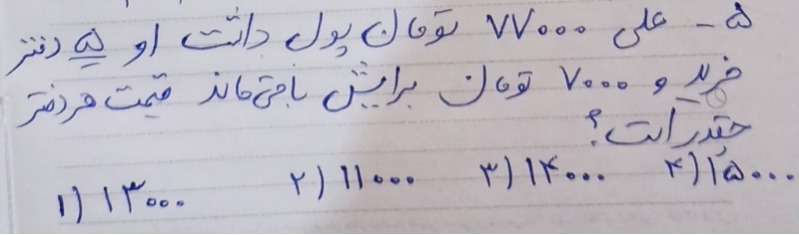 ۵- علی ۷۷۰۰۰ تومان پول داشت او ۵ دفتر
خرید و ۷۰۰۰ تومان برایش باقی ماند قیمت هر دفتر
چقدر است؟
۱) ۱۳۰۰۰ ۲) ۱۱۰۰۰ ۳) ۱۴۰۰۰ ۴) ۱۵۰۰۰